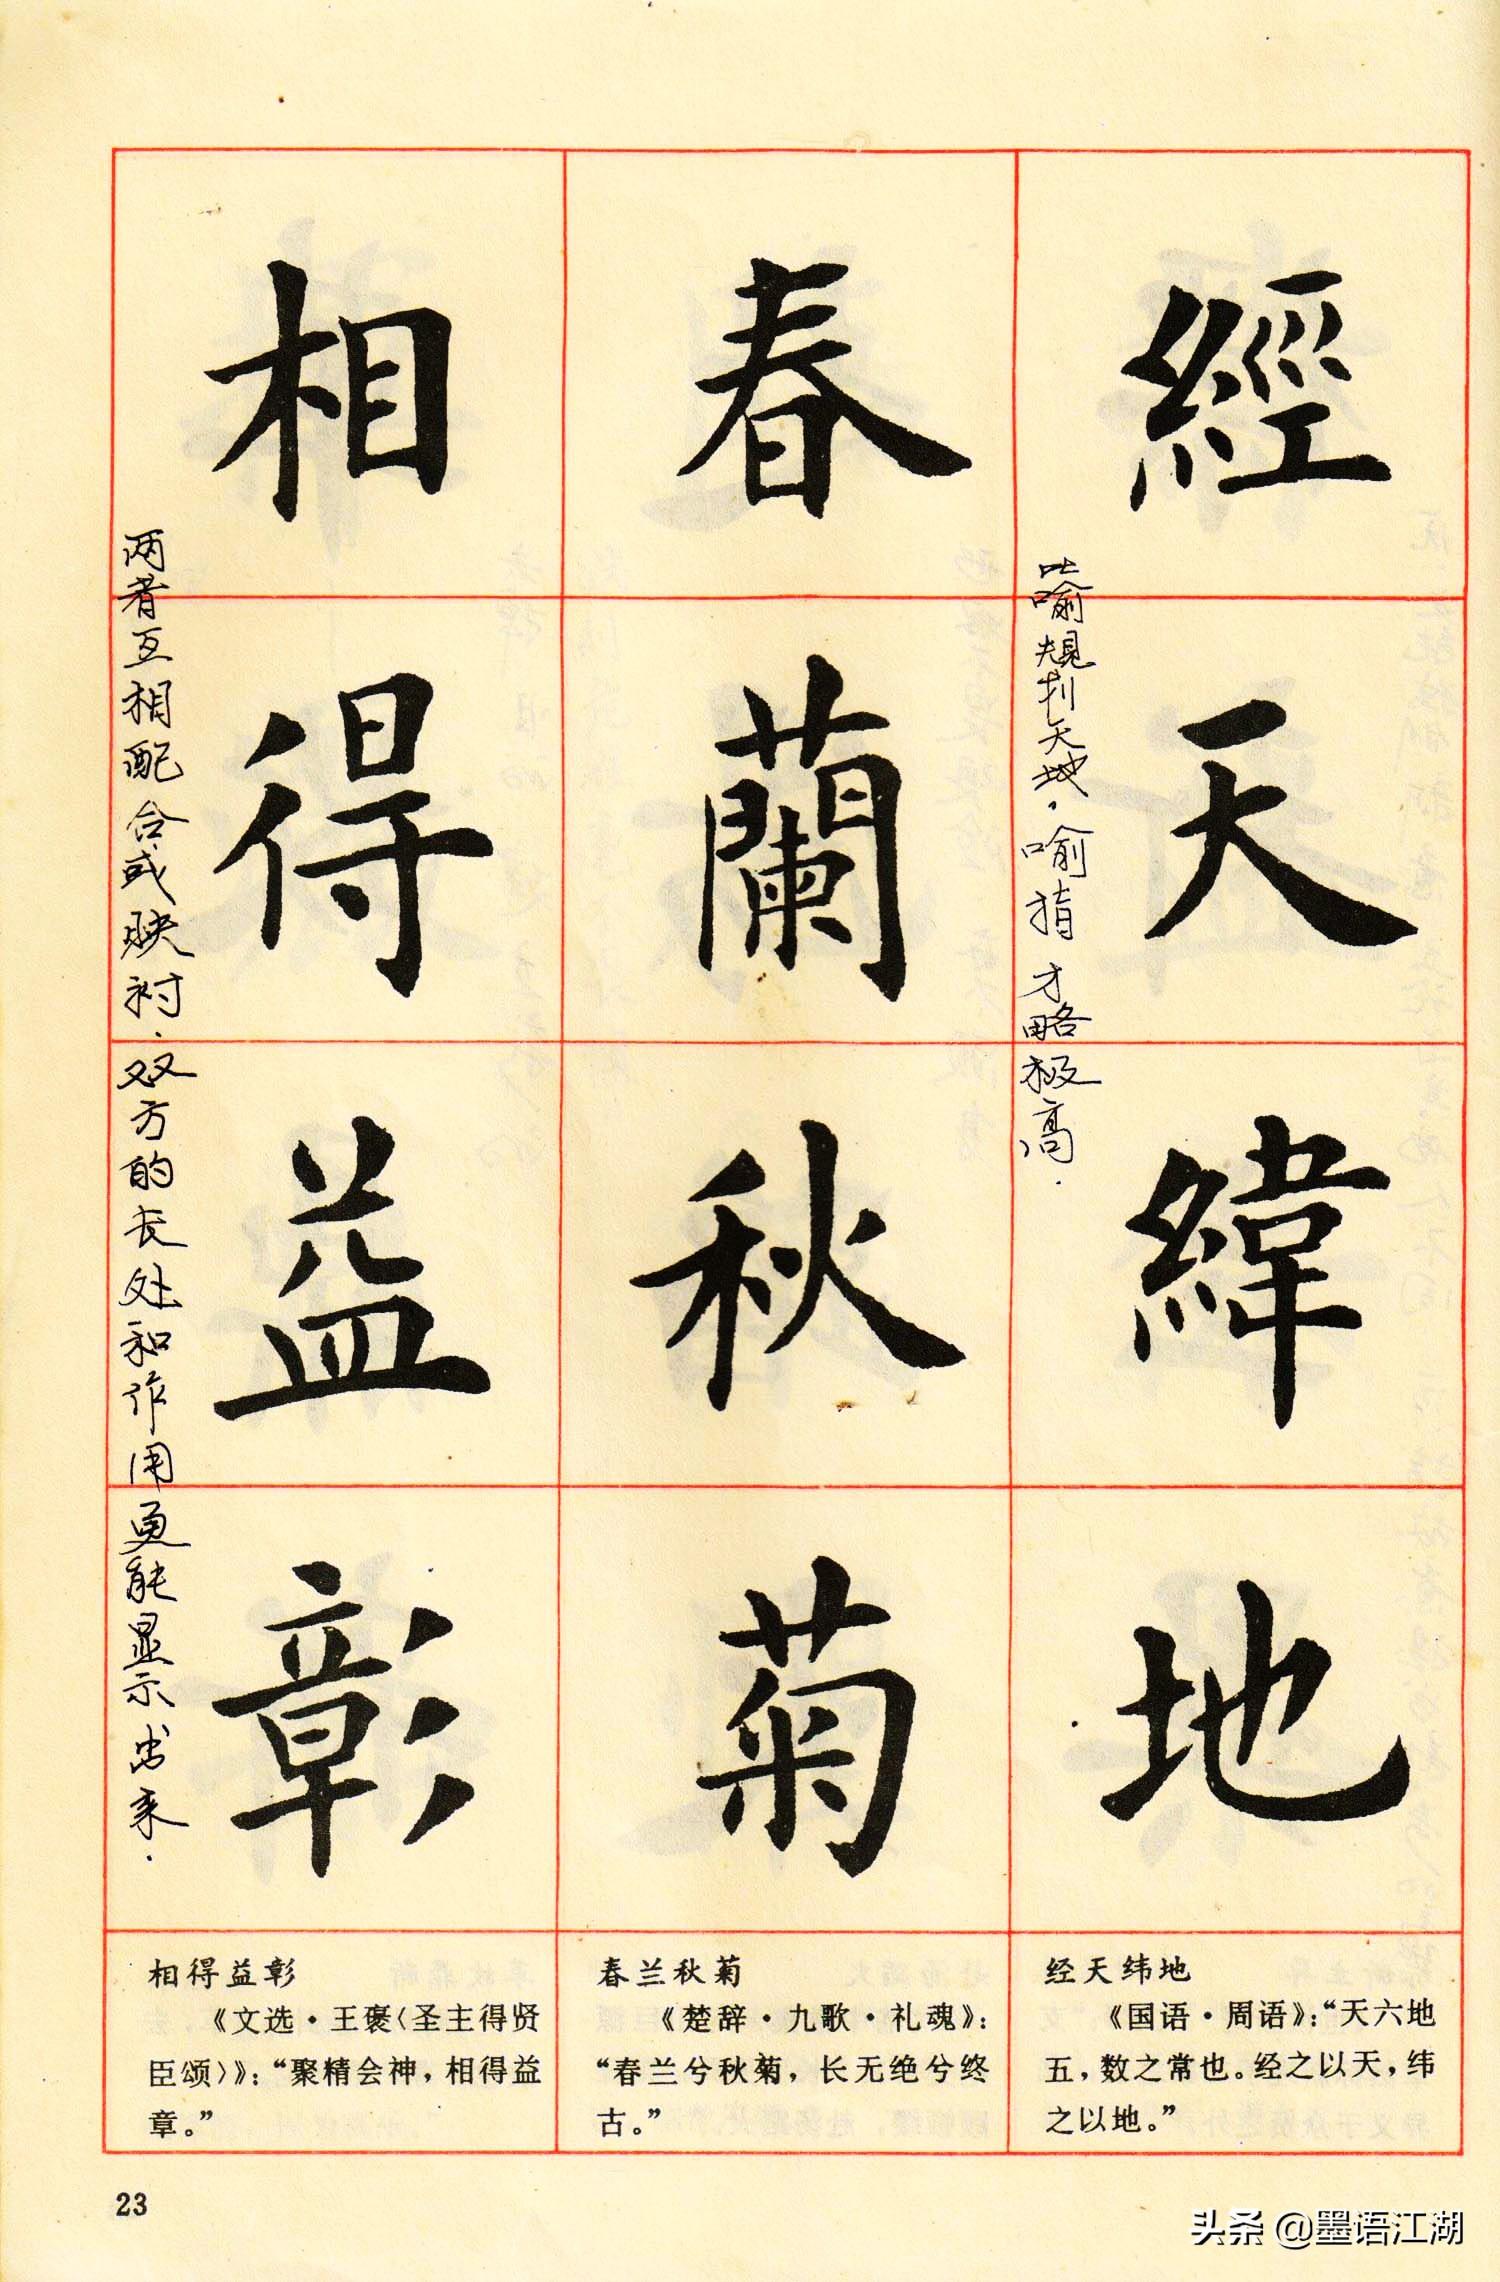 經天緯地
比喻规划天地。喻指才略极高.
春蘭秋菊
相得益彰
两者互相配合或映衬.双方的长处和作用更能显示出来.
经天纬地
《国语·周语》：“天六地
五，数之常也。经之以天，纬
之以地。”
春兰秋菊
《楚辞·九歌·礼魂》：
“春兰兮秋菊，长无绝兮终
古。”
相得益彰
《文选·王褒〈圣主得贤
臣颂〉》：“聚精会神，相得益
章。”
23
头条 @墨语江湖